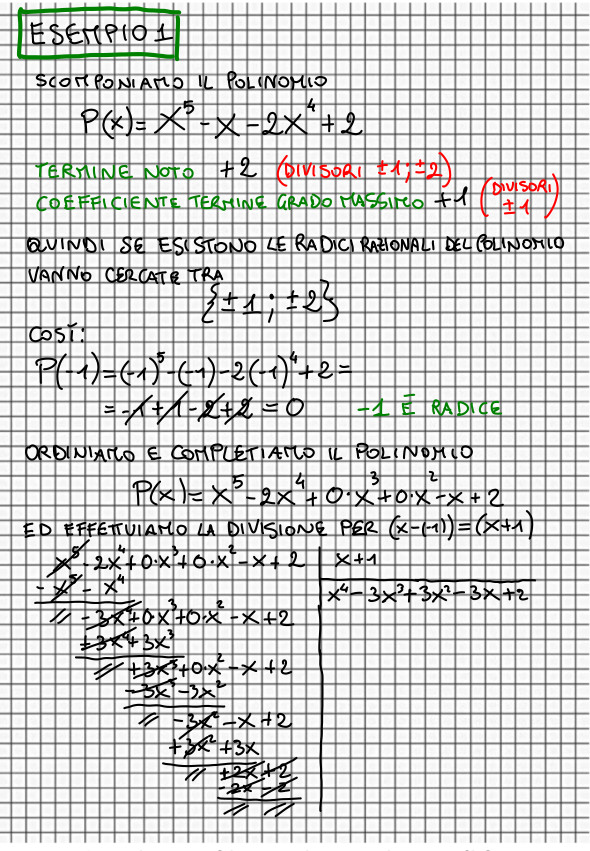 ESEMPIO 1
SCOMPONIAMO IL POLINOMIO
P(x)= x⁵-x-2x⁴+2
TERMINE NOTO +2 (DIVISORI ±1;±2)
COEFFICIENTE TERMINE GRADO MASSIMO +1 (DIVISORI ±1)
QUINDI SE ESISTONO LE RADICI RAZIONALI DEL POLINOMIO
VANNO CERCATE TRA
{±1;±2}
COSÌ:
P(-1)=(-1)⁵-(-1)-2(-1)⁴+2=
=-1+1-2+2=0 -1 È RADICE
ORDINIAMO E COMPLETIAMO IL POLINOMIO
P(x)=x⁵-2x⁴+0·x³+0·x²-x+2
ED EFFETTUIAMO LA DIVISIONE PER (x-(-1))=(x+1)
x⁵-2x⁴+0·x³+0·x²-x+2 x+1
-x⁵-x⁴ x⁴-3x³+3x²-3x+2
// -3x⁴+0x³+0·x²-x+2
+3x⁴+3x³
// +3x³+0·x²-x+2
-3x³-3x²
// -3x²-x+2
+3x²+3x
// +2x+2
-2x-2
// //